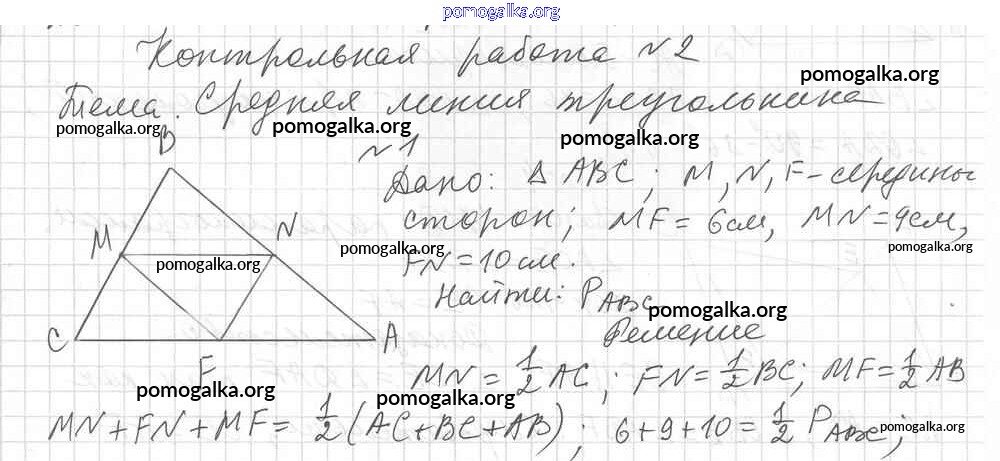 pomogalka.org
Контрольная работа №2
pomogalka.org
Тема. Средняя линия треугольника
pomogalka.org pomogalka.org pomogalka.org
B
№1
Дано: Δ ABC; M, N, F - середины
M N
сторон; MF = 6см, MN = 9см,
pomogalka.org pomogalka.org pomogalka.org
FN = 10 см.
Найти: P ABC
pomogalka.org
C A
Решение
F
MN = 1/2 AC; FN = 1/2 BC; MF = 1/2 AB
pomogalka.org pomogalka.org
MN + FN + MF = 1/2 (AC + BC + AB); 6 + 9 + 10 = 1/2 P ABC;
pomogalka.org